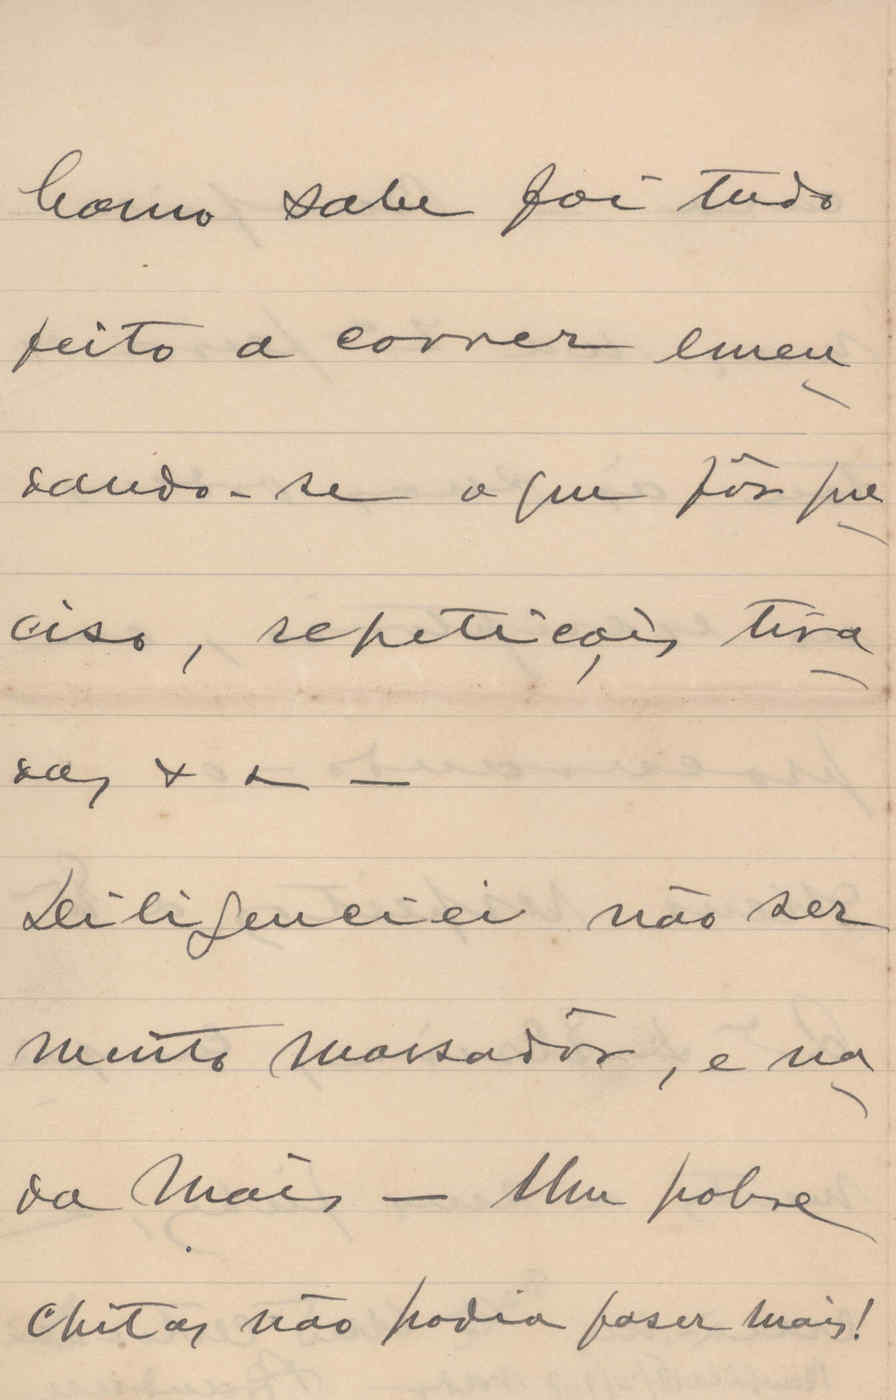 Como sabe foi tudo
feito a correr emen
dando-se o que fôr pre
ciso, repetições tira
das & & —
Deiligenciei não ser
muito massadôr, e na
da mais — Um pobre
Chitas não podia faser mais!